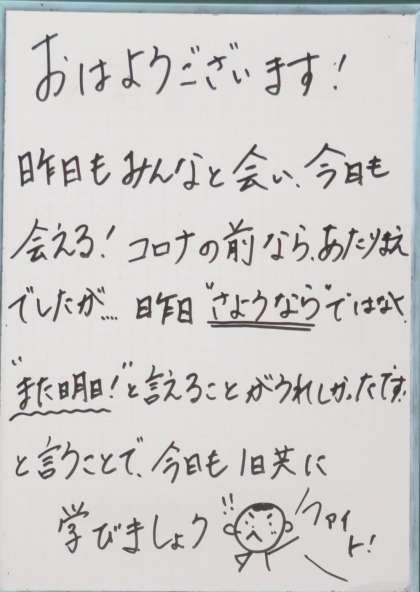 おはようございます!
昨日もみんなと会い、今日も
会える!コロナの前なら、あたりまえ
でしたが… 昨日"さようなら"ではなく、
"また明日!"と言えることがうれしかったです!
と言うことで、今日も1日共に
学びましょう
!!
ファイ
ト!